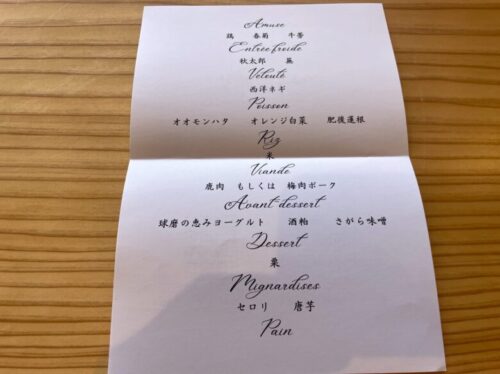 Amuse
鶏 春菊 牛蒡
Entrée froide
秋太郎 蕪
Velouté
西洋ネギ
Poisson
オオモンハタ オレンジ白菜 肥後蓮根
Riz
米
Viande
鹿肉 もしくは 梅肉ポーク
Avant dessert
球磨の恵みヨーグルト 酒粕 さがら味噌
Dessert
栗
Mignardises
セロリ 唐芋
Pain